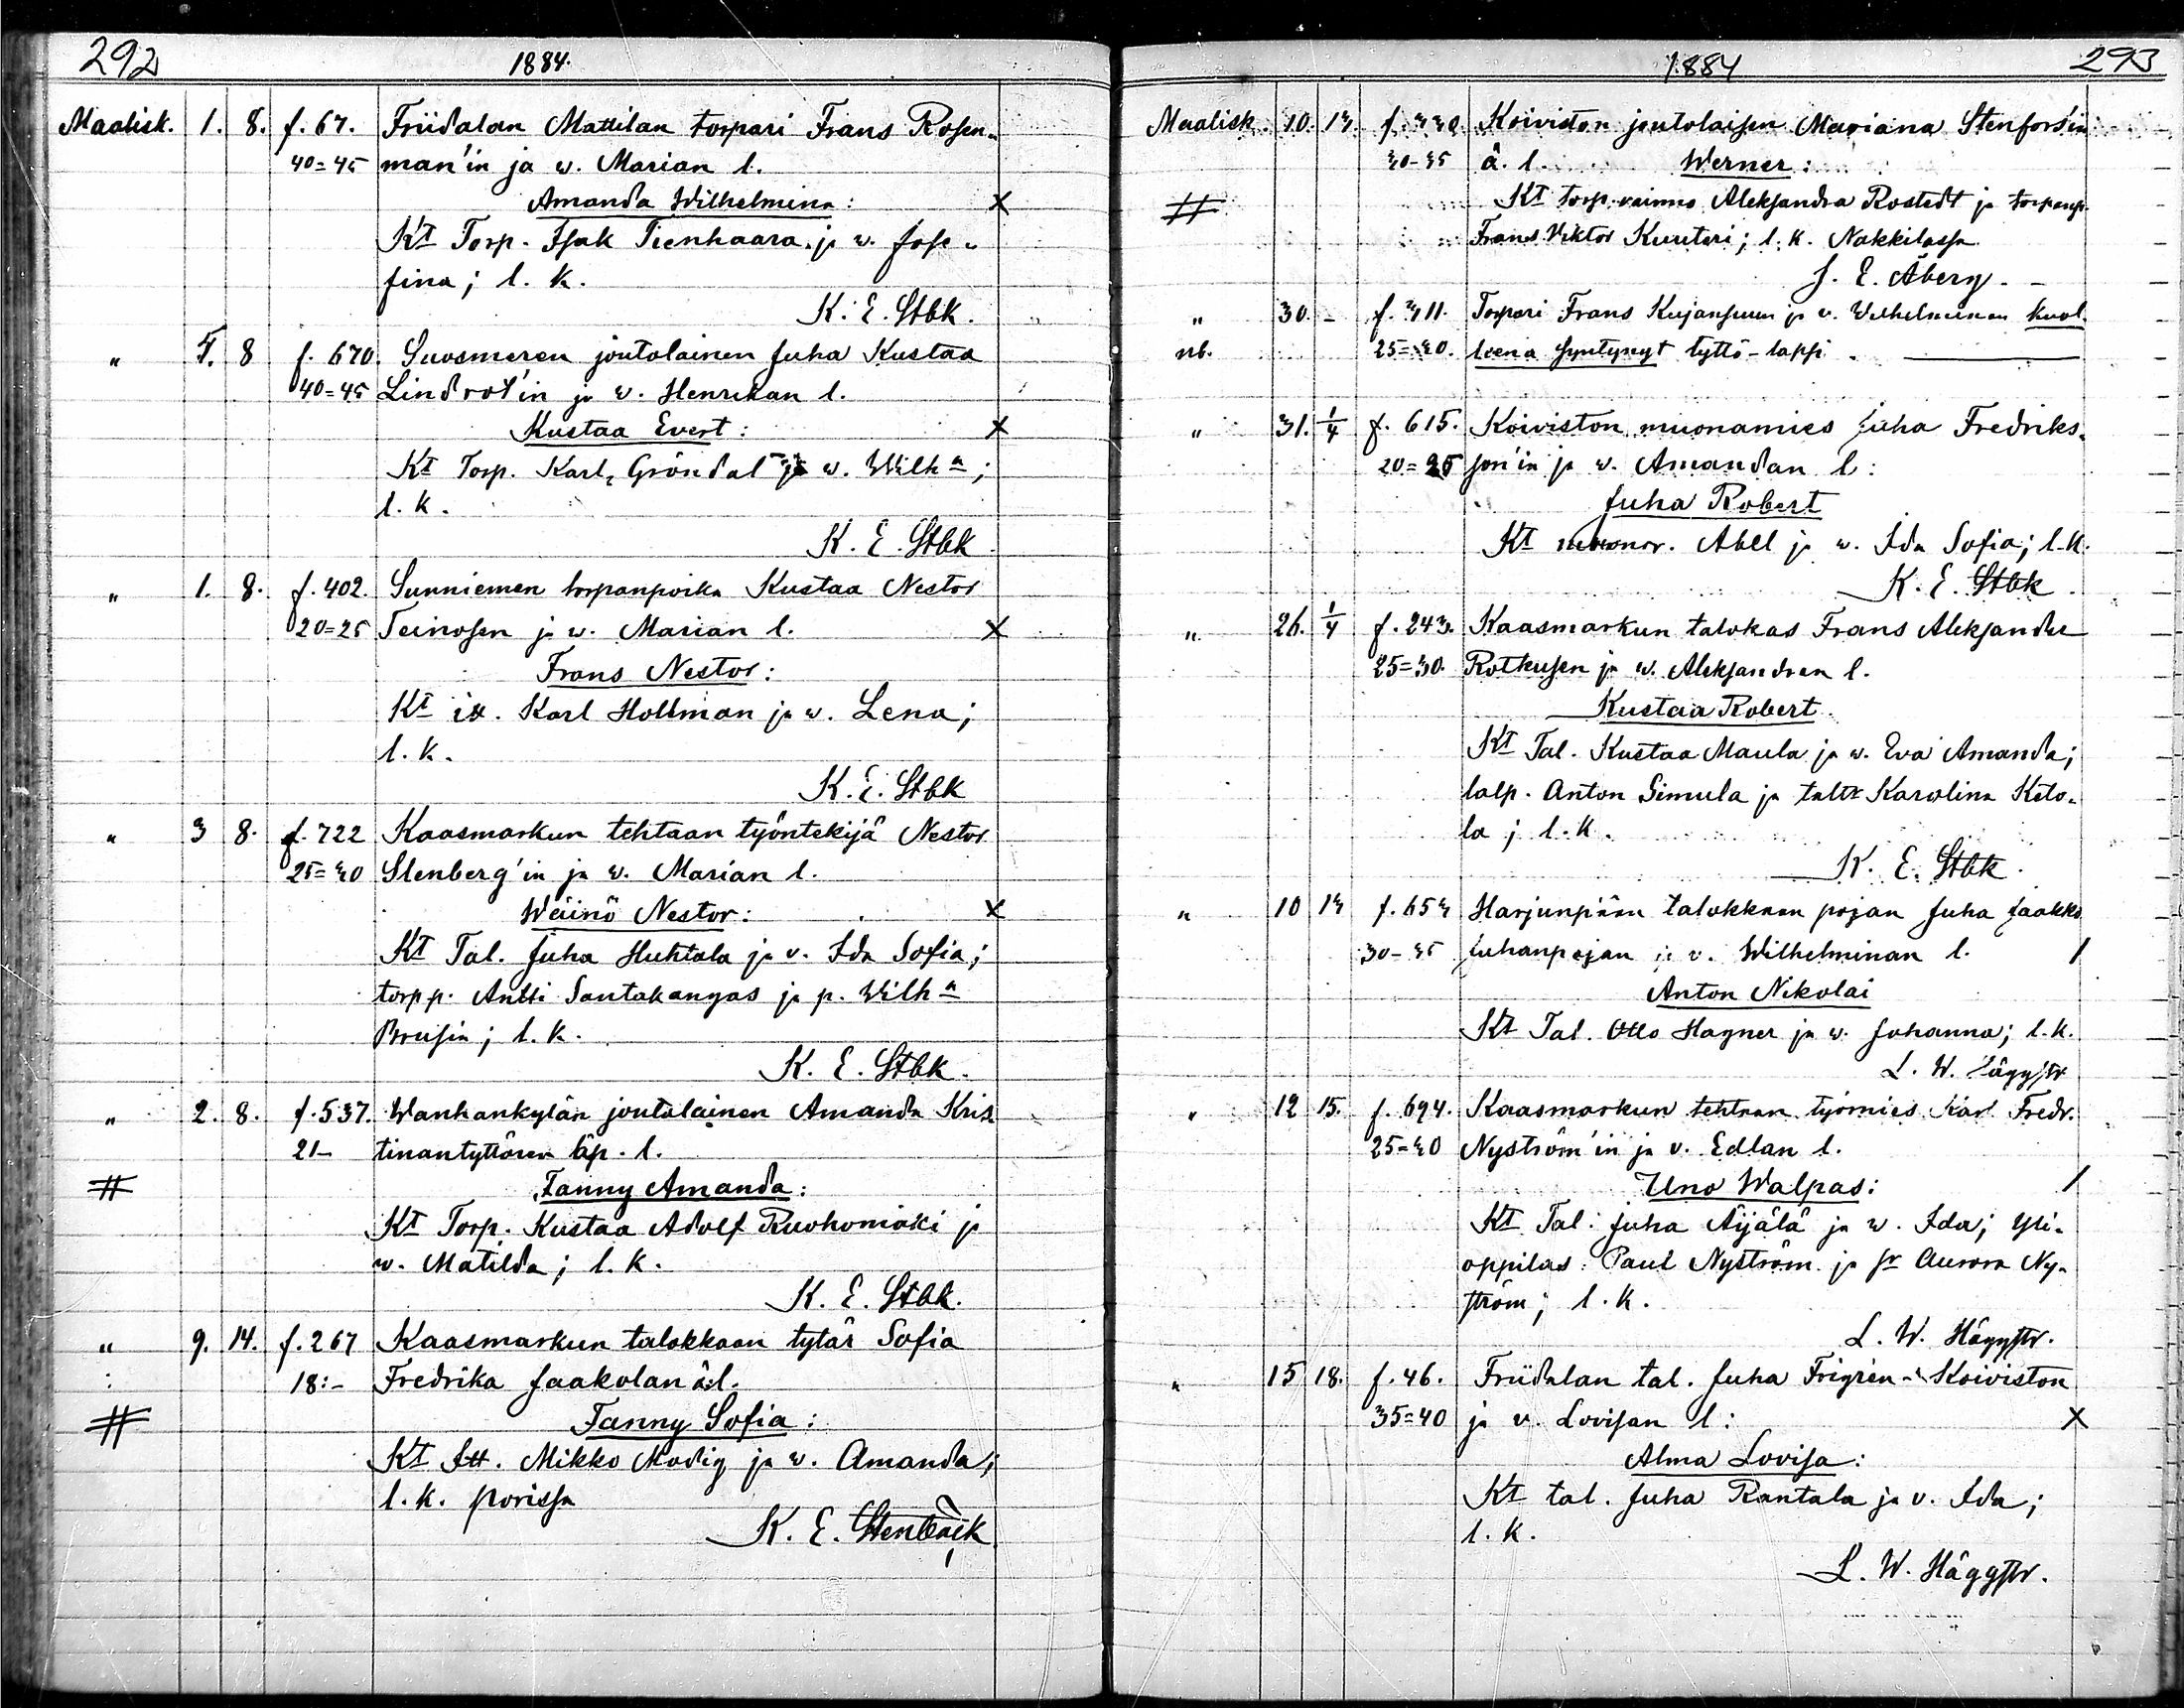 292
1884.
Maalisk. 1. 8. f. 67. Friidalan Mattilan torpari Frans Rosen-
40=45 man'in ja w. Marian l.
Amanda Wilhelmina: X
Kt Torp. Isak Tienhaara ja w. Jose-
fina; l. k.
K. E. Stbk.
" 5. 8 f. 670. Suosmeren joutolainen Juha Kustaa
40=45 Lindrot'in ja w. Henrikan l.
Kustaa Evert: X
Kt Torp. Karl Gröndal ja w. Wilha;
l. k.
K. E. Stbk
" 1. 8. f. 402. Sunniemen torpanpoika Kustaa Nestor
20=25 Teinosen ja w. Marian l. X
Frans Nestor:
Kt itt. Karl Hollman ja w. Lena;
l. k.
K. E. Stbk
" 3 8. f. 722 Kaasmarkun tehtaan työntekijä Nestor
25=30 Stenberg'in ja w. Marian l.
Wäinö Nestor: X
Kt Tal. Juha Huhtala ja v. Ida Sofia;
torpp. Antti Santakangas ja p. Wilha
Brusin; l. k.
K. E. Stbk.
" 2. 8. f. 537. Wanhankylän joutolainen Amanda Kris
21- tinantyttären äp. l.
# Fanny Amanda:
Kt Torp. Kustaa Adolf Ruohomäki ja
w. Matilda; l. k.
K. E. Stbk.
" 9. 14. f. 267 Kaasmarkun talokkaan tytär Sofia
18:- Fredrika Jaakolan ä. l.
# Fanny Sofia:
Kt Itt. Mikko Modig ja w. Amanda;
l. k. Porissa
K. E. Stenbäck
1884
293
Maalisk. 10. 13. Koiviston joutolaisen Mariana Stenfors'in
30-35 ä. l. Werner:
# Kt torp. vaimo Aleksandra Rostedt ja torpanp.
Frans Viktor Kuuteri; l. k. Nakkilassa
J. E. Åberg. -
" 30. - f. 311. Torpari Frans Kujansuun ja v. Wilhelminan kuol-
nb. 25=30. leena syntynyt tyttö-lapsi.
" 31. 1/4 f. 615. Koiviston muonamies Juha Fredriks-
20=25 son'in ja w. Amandan l:
Juha Robert
Kt Abel ja w. Ida Sofia; l. k.
K. E. Stbk.
" 26. 1/4 f. 243. Kaasmarkun talokas Frans Aleksander
25=30. Rotkusen ja w. Aleksandran l.
Kustaa Robert.
Kt Tal. Kustaa Maula ja w. Eva Amanda;
talp. Anton Simula ja taltr Karolina Keto-
la; l. k.
K. E. Stbk.
" 10 13 f. 653 Harjunpään talokkaan pojan Juha Jaakko
30-35 Juhanpojan ja v. Wilhelminan l. /
Anton Nikolai
Kt Tal. Otto Hagner ja w. Johanna; l. k.
L. W. Häggstr
" 12 15. f. 694. Kaasmarkun tehtaan työmies Karl Fredr.
25=30 Nyström'in ja v. Edlan l.
Uno Walpas: /
Kt Tal. Juha Äijälä ja w. Ida; yli-
oppilas Paul Nyström ja fr Aurora Ny-
ström; l. k.
L. W. Häggstr.
" 15 18. f. 46. Friidalan tal. Juha Frigren - Koiviston
35=40 ja v. Lovisan l: X
Alma Lovisa:
Kt tal. Juha Rantala ja v. Ida;
l. k.
L. W. Häggstr.